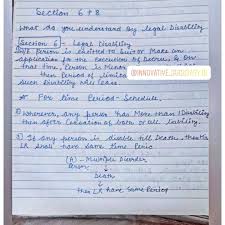 Section 6 & 8
What do you understand by Legal Disability
Section 6 - Legal Disability
If Person is Entitled to Suit or Make an
application for the Execution of Decree, & Due
that time, Person is Minor
then Period of limita
Such Disability was Cease.
@INNOVATIVE
* For time Period - Schedule.
2) Wherever, any Person has More than 1 Disability
then after Cessation of both or all Liability.
3) If any Person is disable till Death, then his
LR shall have Same time Perio
(A) - Multiple Disorder
Person
↓
Death
↓
then LR have Same Period